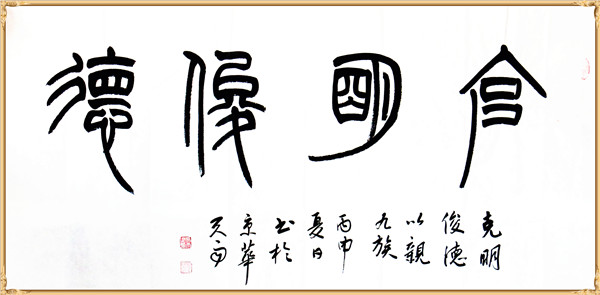 克明俊德
克明
俊德
以親
九族
丙申
夏日
书於
京華
天雨